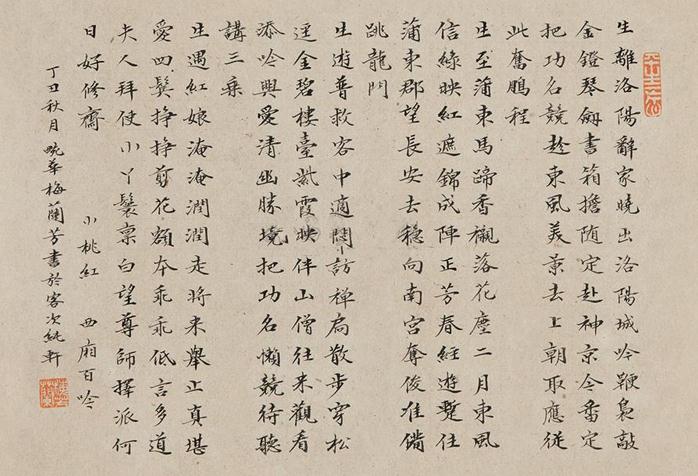 生離洛陽辭家曉出洛陽城吟鞭裊敲
金鐙琴劍書箱擔随定赴神京今番定
把功名競趁東風美景去上朝取應從
此奮鵬程
生至蒲東馬蹄香襯落花塵二月東風
信綠映紅遮錦成陣正芳春経遊蹔住
蒲東郡望長安去穩向南宮奪俊准備
跳龍門
生遊普救客中適悶訪禅扃散步穿松
逕金碧樓臺紫霞映伴山僧往来觀看
添吟興愛清幽勝境把功名懶競待聽
講三乗
生遇紅娘淹淹潤潤走將来舉止真堪
愛四鬓掙掙剪花額本乖乖低言多道
夫人拜使小丫鬟禀白望尊師擇派何
日好修齋　小桃紅　西廂百吟
丁丑秋月畹華梅蘭芳書於客次純軒